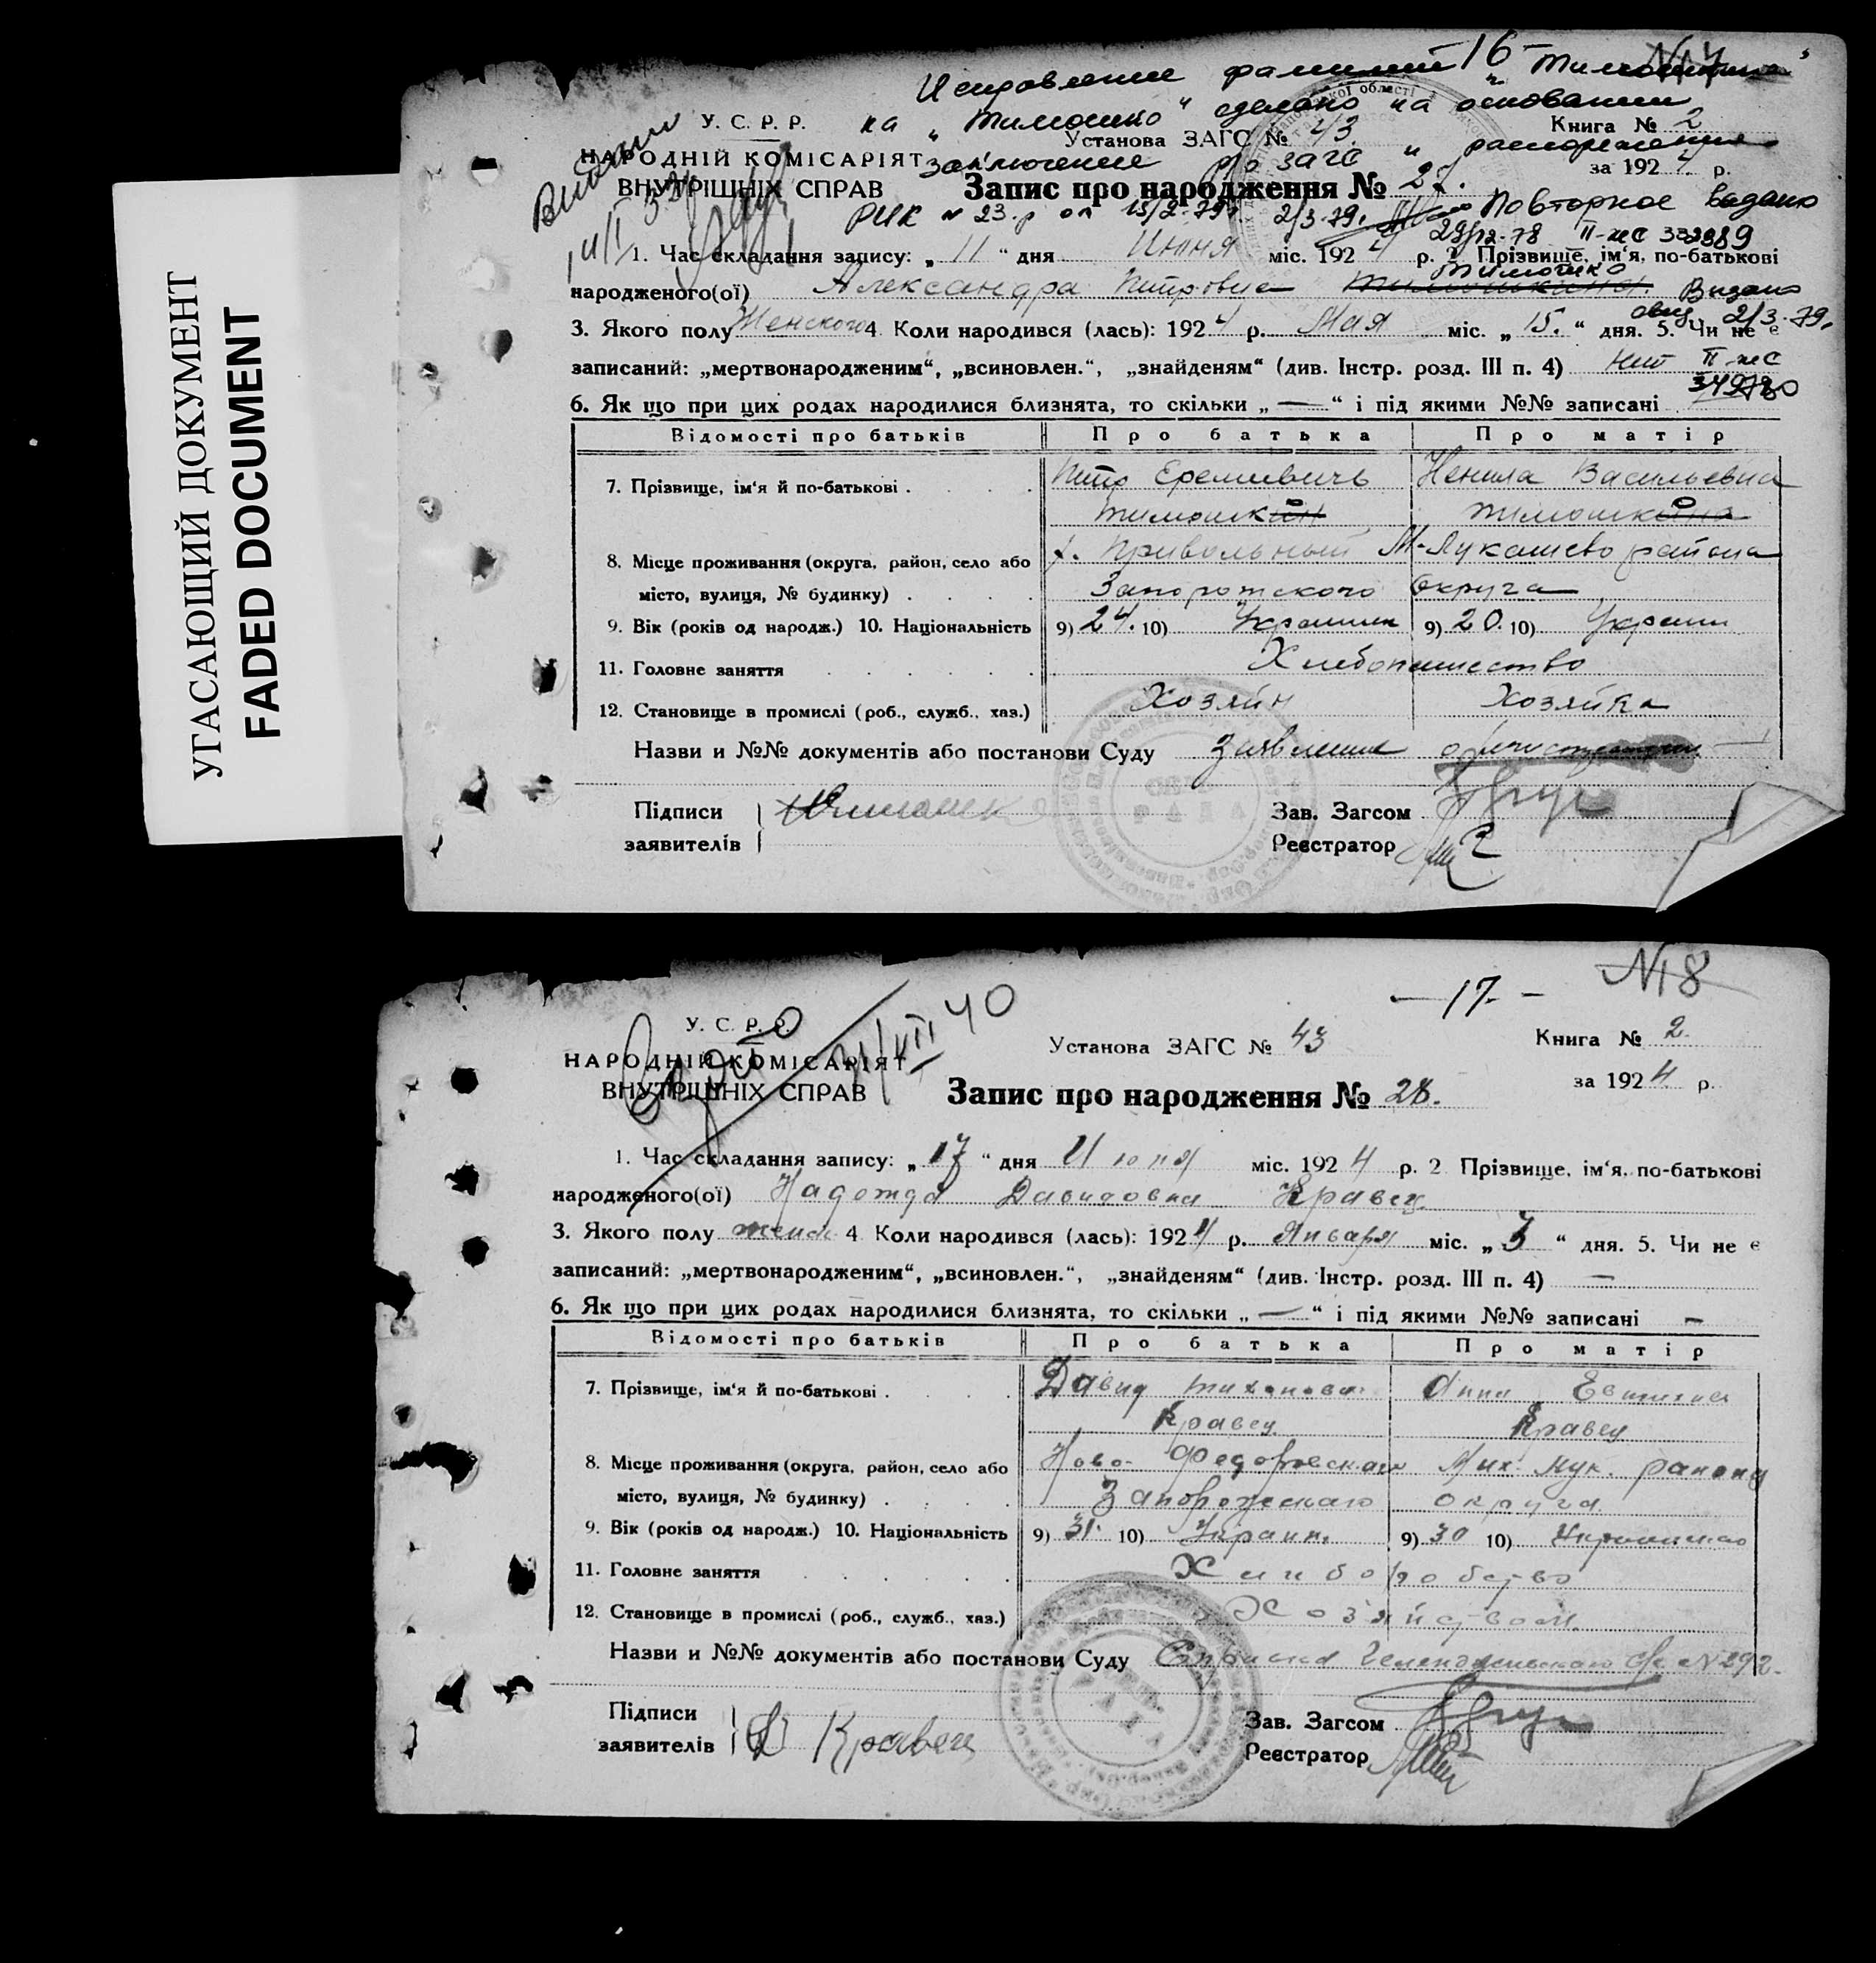 УГАСАЮЩИЙ ДОКУМЕНТ
FADED DOCUMENT
16 - N17
Исправление фамилии "Тимошкина"
на "Тимошко" сделано на основании
заключение р/о загс и распоряжения
РИК N 23-р от 15/2-79г. 2/3-79. Повторное выдано
29/12-78 II-ЖС
У. С. Р. Р.
НАРОДНІЙ КОМІСАРІЯТ
ВНУТРІШНІХ СПРАВ
Установа ЗАГС № 43.
Книга № 2
за 1924 р.
Запис про народження № 27.
1. Час складання запису: „ 11 “ дня Июня міс. 1924 р. 2 Прізвище, ім'я, по-батькові
Тимошко
народженого(ої) Александра Петровна Тимошкина. Видано
свид. 2/3-79.
3. Якого полу Женского 4 Коли народився (лась): 1924 р. Мая міс. „ 15. “ дня. 5. Чи не є
записаний: „мертвонародженим“, „всиновлен.“, „знайденям“ (див. Інстр. розд. III п. 4) нет II-ЖС
6. Як що при цих родах народилися близнята, то скільки „ — “ і під якими №№ записані
Відомості про батьків Про батька Про матір
7. Прізвище, ім'я й по-батькові . Петр Еремиевичь Ненила Васильевна
Тимошкин о Тимошкина о
8. Місце проживання (округа, район, село або х. Привольный М-Лукашево района
місто, вулиця, № будинку) Запорожского Округа
9. Вік (років од народж.) 10. Національність 9) 24. 10) Украинец 9) 20. 10) Украин
11. Головне заняття Хлебопашество
12. Становище в промислі (роб., служб., хаз.) Хозяин Хозяйка
Назви и №№ документів або постанови Суду Заявление
Підписи
заявителів
Тимошко
Зав. Загсом
Реєстратор
-17- N18
31/VII 40
У. С. Р. Р.
НАРОДНІЙ КОМІСАРІЯТ
ВНУТРІШНІХ СПРАВ
Установа ЗАГС № 43
Книга № 2.
за 1924 р.
Запис про народження № 28.
1. Час складання запису: „ 17 “ дня Июня міс. 1924 р. 2 Прізвище, ім'я, по-батькові
народженого(ої) Надежда Давидовна Кравец
3. Якого полу женск 4 Коли народився (лась): 1924 р. Января міс. „ 3 “ дня. 5. Чи не є
записаний: „мертвонародженим“, „всиновлен.“, „знайденям“ (див. Інстр. розд. III п. 4) —
6. Як що при цих родах народилися близнята, то скільки „ — “ і під якими №№ записані —
Відомості про батьків Про батька Про матір
7. Прізвище, ім'я й по-батькові . Давид Тихонович Анна
Кравец Кравец
8. Місце проживання (округа, район, село або Ново-Федоровскаго Мих. Лук. района
місто, вулиця, № будинку) Запорожскаго округа
9. Вік (років од народж.) 10. Національність 9) 31. 10) Украин. 9) 30 10)
11. Головне заняття Хлиборобство
12. Становище в промислі (роб., служб., хаз.)
Назви и №№ документів або постанови Суду Справка N 292.
Підписи
заявителів
Д Кравец
Зав. Загсом
Реєстратор